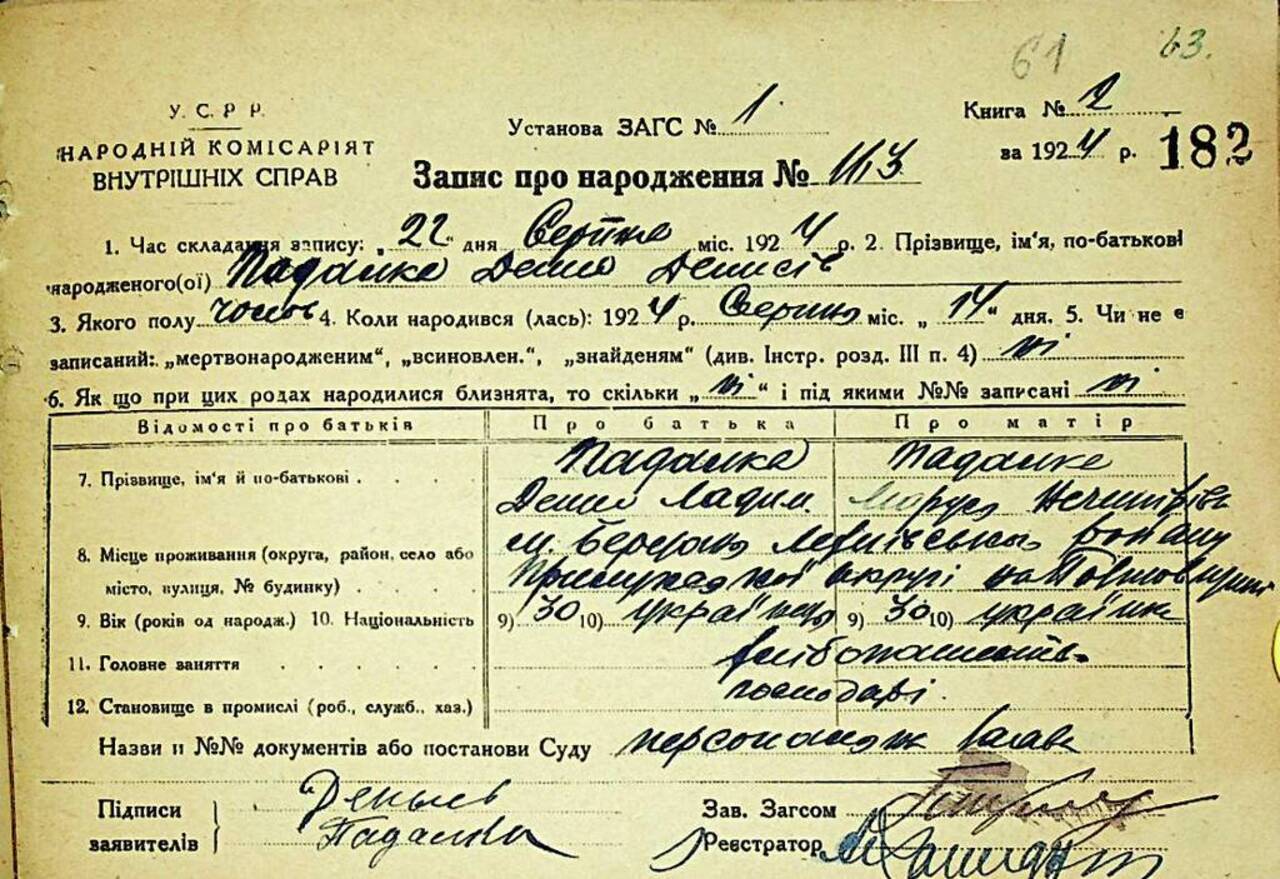 61 63.
У. С. Р Р.
НАРОДНІЙ КОМІСАРІЯТ
ВНУТРІШНІХ СПРАВ
Установа ЗАГС № 1
Книга № 2
за 1924 р. 182
Запис про народження № 113
1. Час складання запису: „22" дня Серпня міс. 1924 р. 2. Прізвище, ім'я, по-батькові
народженого(ої) Падалка Денис Денисів
3. Якого полу 4. Коли народився (лась): 1924 р. Серпня міс. „14" дня. 5. Чи не є
записаний: „мертвонародженим", „всиновлен.", „знайденям" (див. Інстр. розд. III п. 4) ні
6. Як що при цих родах народилися близнята, то скільки „ні" і під якими №№ записані ні
Відомості про батьків Про батька Про матір
7. Прізвище, ім'я й по-батькові . . . . Падалка Падалка
Денис Маруся
8. Місце проживання (округа, район, село або м. Березань
місто, вулиця, № будинку) . . . . Прилуцької округи на Полтавщині
9. Вік (років од народж.) 10. Національність 9) 30 10) українець 9) 30 10) українк
11. Головне заняття . . . . . хліборобство
12. Становище в промислі (роб., служб., хаз.) господарі.
Назви и №№ документів або постанови Суду
Підписи
заявителів
Денис
Падалка
Зав. Загсом
Реєстратор